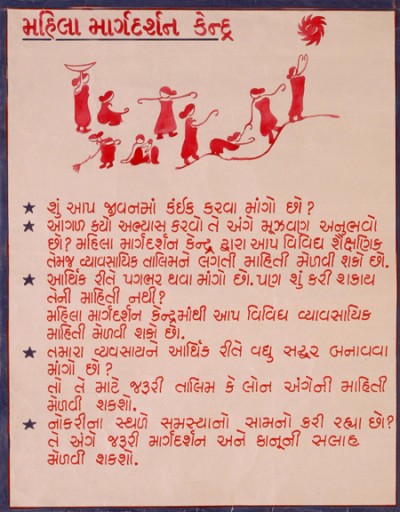 મહિલા માર્ગદર્શન કેન્દ્ર
★ શું આપ જીવનમાં કંઈક કરવા માંગો છો?
★ આગળ કયો અભ્યાસ કરવો તે અંગે મૂઝવાગ અનુભવો
છો? મહિલા માર્ગદર્શન કેન્દ્ર દ્વારા આપ વિવિધ શૈક્ષણિક
તેમજ વ્યાવસાયિક તાલિમને લગતી માહિતી મેળવી શકો છો.
★ આર્થિક રીતે પગભર થવા માંગો છો. પણ શું કરી શકાય
તેની માહિતી નથી?
મહિલા માર્ગદર્શન કેન્દ્રમાંથી આપ વિવિધ વ્યાવસાયિક
માહિતી મેળવી શકો છો.
★ તમારા વ્યવસાયને આર્થિક રીતે વધુ સદ્ધર બનાવવા
માંગો છો?
તો તે માટે જરૂરી તાલિમ કે લોન અંગેની માહિતી
મેળવી શકશો.
★ નોકરીના સ્થળે સમસ્યાનો સામનો કરી રહ્યા છો?
તે અંગે જરૂરી માર્ગદર્શન અને કાનૂની સલાહ
મેળવી શકશો.